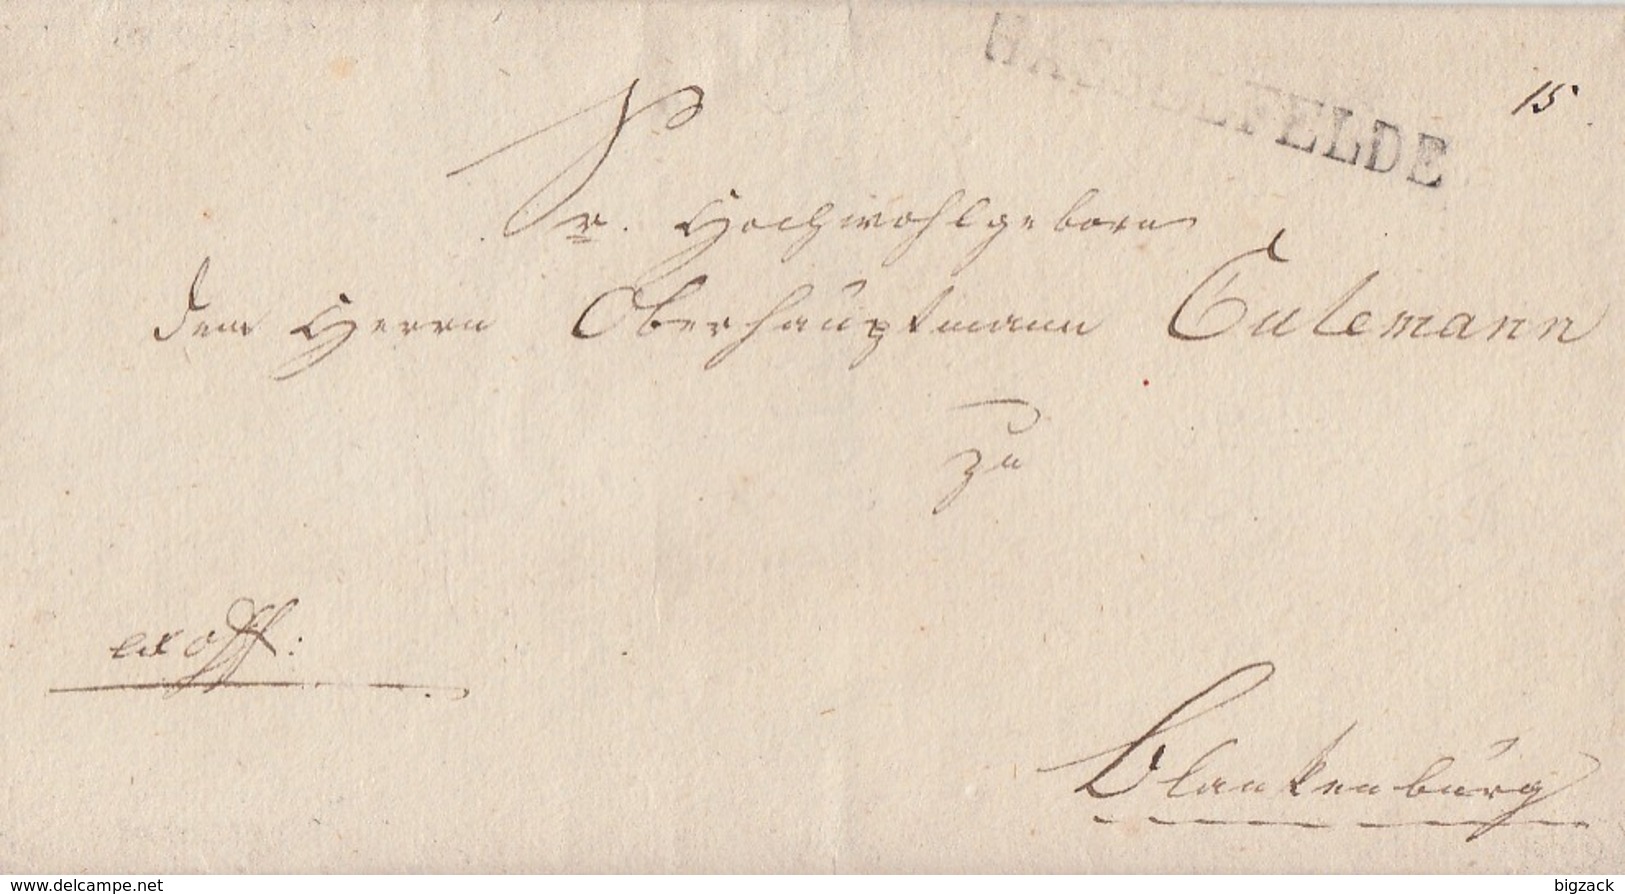 HASSELFELDE
15.
Sr. Hochwohlgeborn
dem Herrn Oberhauptmann Culemann
zu
ex off:
Blankenburg
www.delcampe.net
bigzack